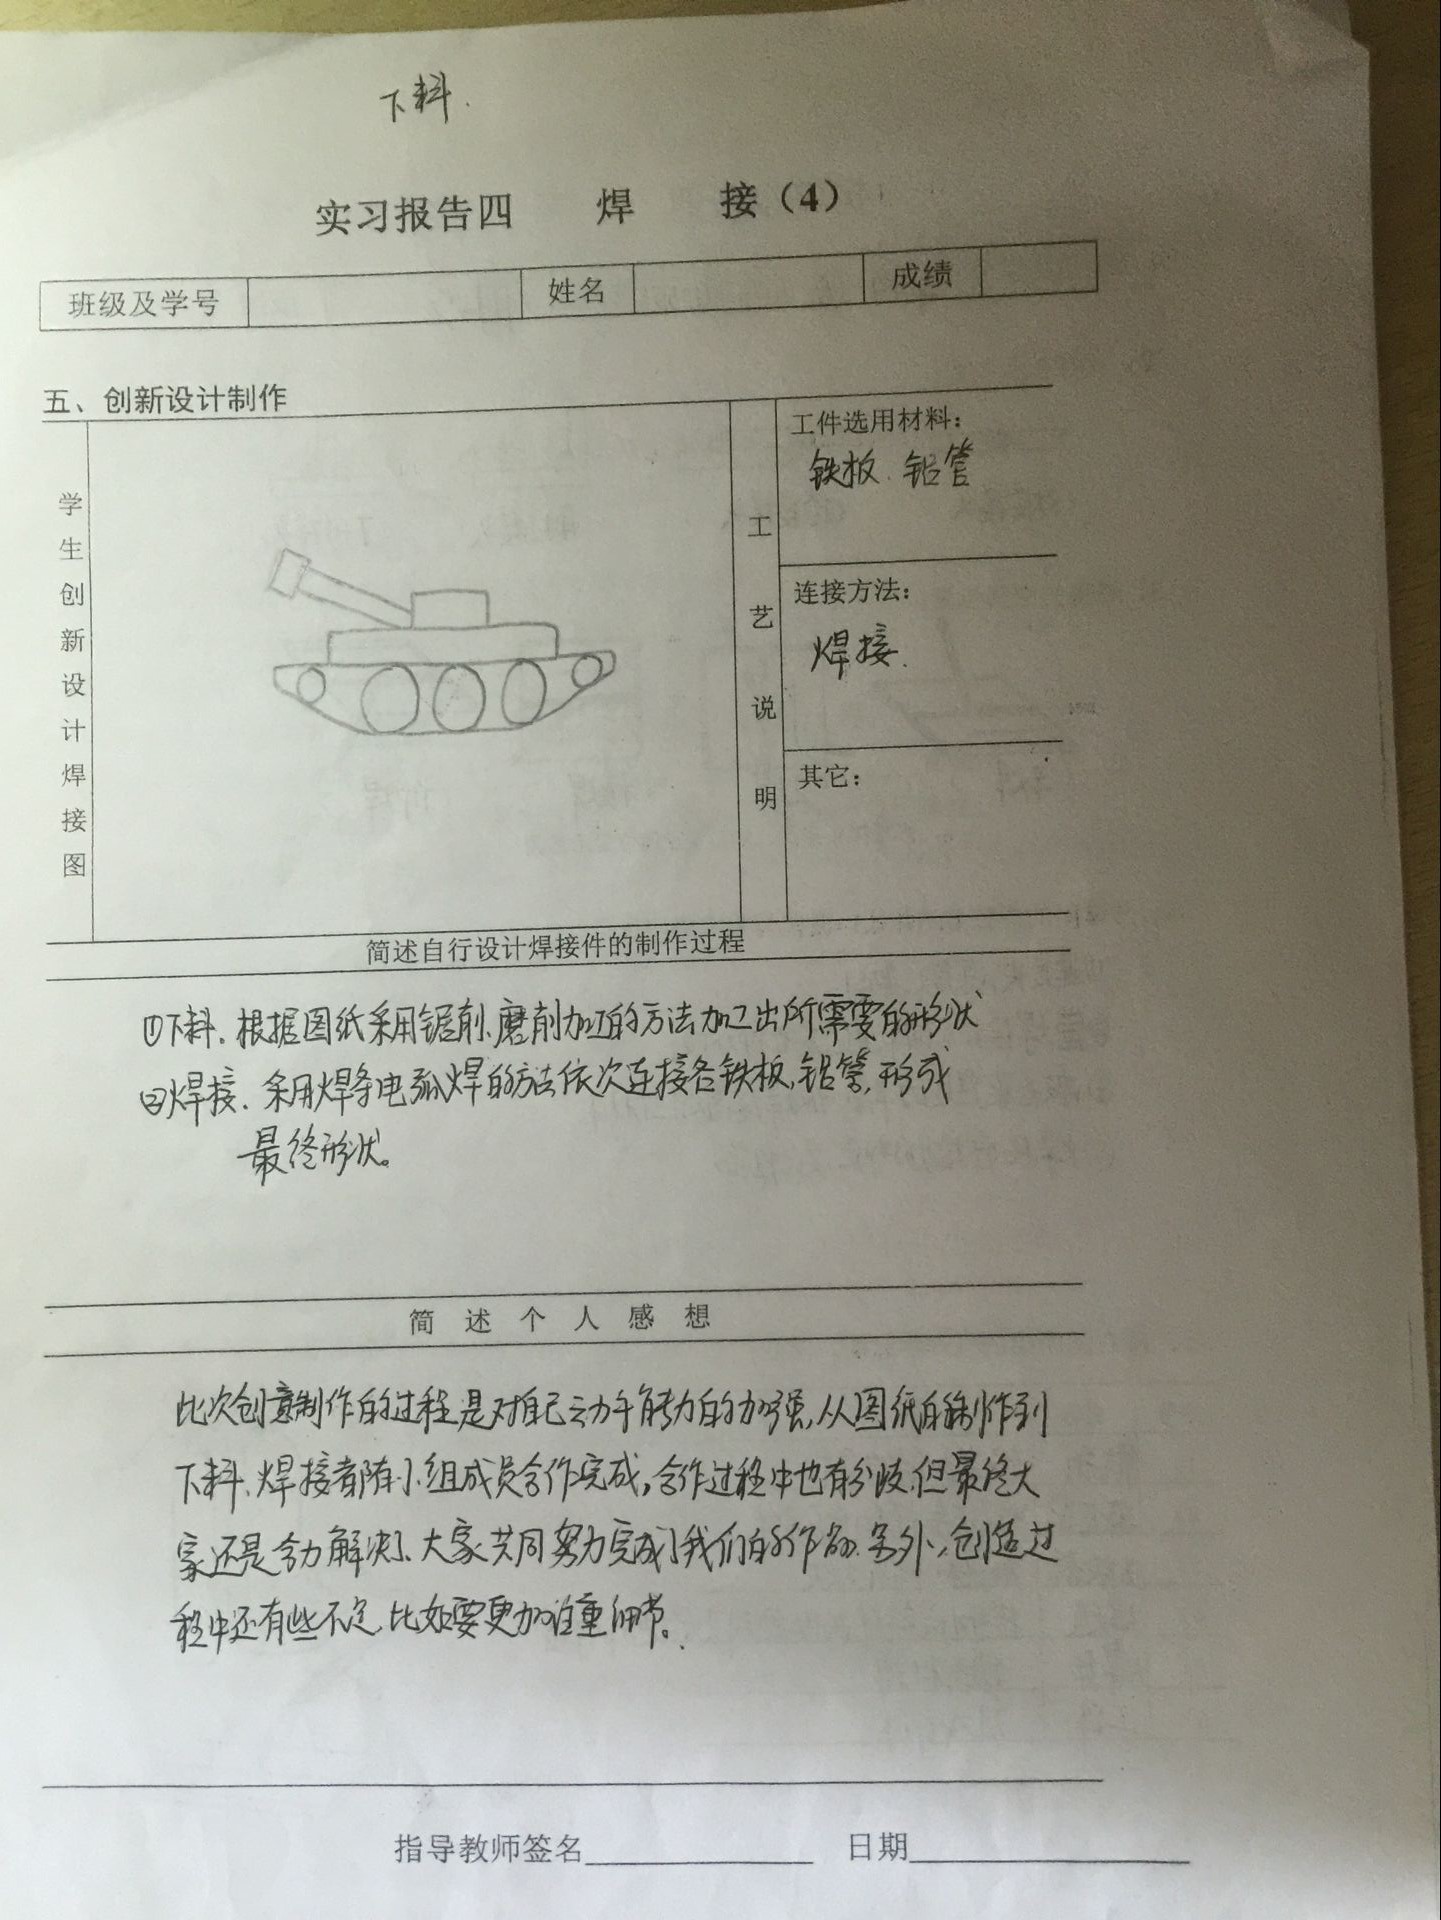 下料.
实习报告四 焊 接（4）
班级及学号 姓名 成绩
五、创新设计制作
学生创新设计焊接图
工艺说明
工件选用材料：
铁板、铝管
连接方法：
焊接.
其它：
简述自行设计焊接件的制作过程
①下料、根据图纸采用锯削、磨削加工的方法加工出所需要的形状
②焊接、采用焊条电弧焊的方法依次连接各铁板,铝管,形成
最终形状。
简述个人感想
此次创意制作的过程是对自己动手能力的加强,从图纸的制作到
下料、焊接都随小组成员合作完成,合作过程中也有分歧,但最终大
家还是合力解决了、大家共同努力完成了我们的作品.另外,创造过
程中还有些不足,比如要更加注重细节。
指导教师签名 日期